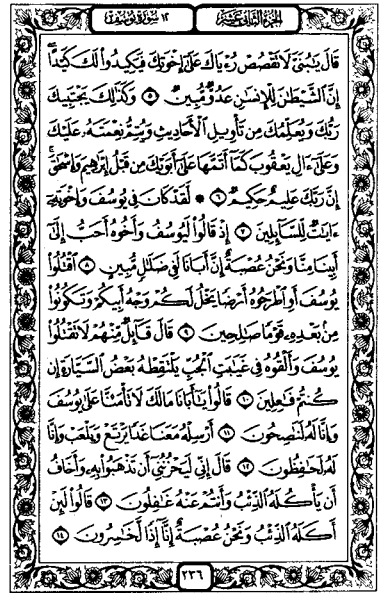 الجزء الثاني عشر
١٢ سورة يوسف
قَالَ يَٰبُنَيَّ لَا تَقْصُصْ رُءْيَاكَ عَلَىٰٓ إِخْوَتِكَ فَيَكِيدُواْ لَكَ كَيْدًاۖ
إِنَّ ٱلشَّيْطَٰنَ لِلْإِنسَٰنِ عَدُوٌّ مُّبِينٌ ٥ وَكَذَٰلِكَ يَجْتَبِيكَ
رَبُّكَ وَيُعَلِّمُكَ مِن تَأْوِيلِ ٱلْأَحَادِيثِ وَيُتِمُّ نِعْمَتَهُۥ عَلَيْكَ
وَعَلَىٰٓ ءَالِ يَعْقُوبَ كَمَآ أَتَمَّهَا عَلَىٰٓ أَبَوَيْكَ مِن قَبْلُ إِبْرَٰهِيمَ وَإِسْحَٰقَۚ
إِنَّ رَبَّكَ عَلِيمٌ حَكِيمٌ ٦ * لَّقَدْ كَانَ فِي يُوسُفَ وَإِخْوَتِهِۦٓ
ءَايَٰتٌ لِّلسَّآئِلِينَ ٧ إِذْ قَالُواْ لَيُوسُفُ وَأَخُوهُ أَحَبُّ إِلَىٰٓ
أَبِينَا مِنَّا وَنَحْنُ عُصْبَةٌ إِنَّ أَبَانَا لَفِي ضَلَٰلٍ مُّبِينٍ ٨ ٱقْتُلُواْ
يُوسُفَ أَوِ ٱطْرَحُوهُ أَرْضًا يَخْلُ لَكُمْ وَجْهُ أَبِيكُمْ وَتَكُونُواْ
مِنۢ بَعْدِهِۦ قَوْمًا صَٰلِحِينَ ٩ قَالَ قَآئِلٌ مِّنْهُمْ لَا تَقْتُلُواْ
يُوسُفَ وَأَلْقُوهُ فِي غَيَٰبَتِ ٱلْجُبِّ يَلْتَقِطْهُ بَعْضُ ٱلسَّيَّارَةِ إِن
كُنتُمْ فَٰعِلِينَ ١٠ قَالُواْ يَٰٓأَبَانَا مَا لَكَ لَا تَأْمَ۬نَّا عَلَىٰ يُوسُفَ
وَإِنَّا لَهُۥ لَنَٰصِحُونَ ١١ أَرْسِلْهُ مَعَنَا غَدًا يَرْتَعْ وَيَلْعَبْ وَإِنَّا
لَهُۥ لَحَٰفِظُونَ ١٢ قَالَ إِنِّي لَيَحْزُنُنِيٓ أَن تَذْهَبُواْ بِهِۦ وَأَخَافُ
أَن يَأْكُلَهُ ٱلذِّئْبُ وَأَنتُمْ عَنْهُ غَٰفِلُونَ ١٣ قَالُواْ لَئِنْ
أَكَلَهُ ٱلذِّئْبُ وَنَحْنُ عُصْبَةٌ إِنَّآ إِذًا لَّخَٰسِرُونَ ١٤
٢٣٦